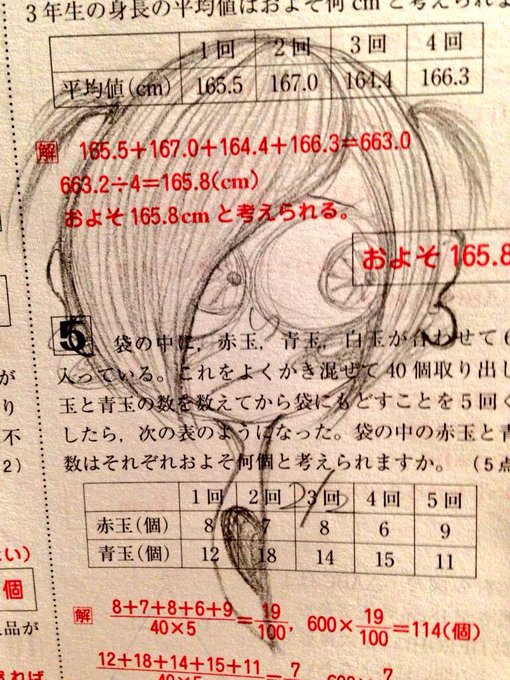 3年生の身長の平均値はおよそ何cmと考えられま
1回 2回 3回 4回
平均値(cm) 165.5 167.0 164.4 166.3
解 165.5+167.0+164.4+166.3=663.0
663.2÷4=165.8(cm)
およそ165.8cmと考えられる。
およそ165.8
5 袋の中に,赤玉,青玉,白玉が合わせて6
が 入っている。これをよくかき混ぜて40個取り出し
り 玉と青玉の数を数えてから袋にもどすことを5回く
不 したら,次の表のようになった。袋の中の赤玉と青
2) 数はそれぞれおよそ何個と考えられますか。 (5点
1回 2回 3回 4回 5回
赤玉(個) 8 7 8 6 9
青玉(個) 12 18 14 15 11
い)
個
解 8+7+8+6+9/40×5=19/100, 600×19/100=114(個)
品が
12+18+14+15+11 7 7
れば